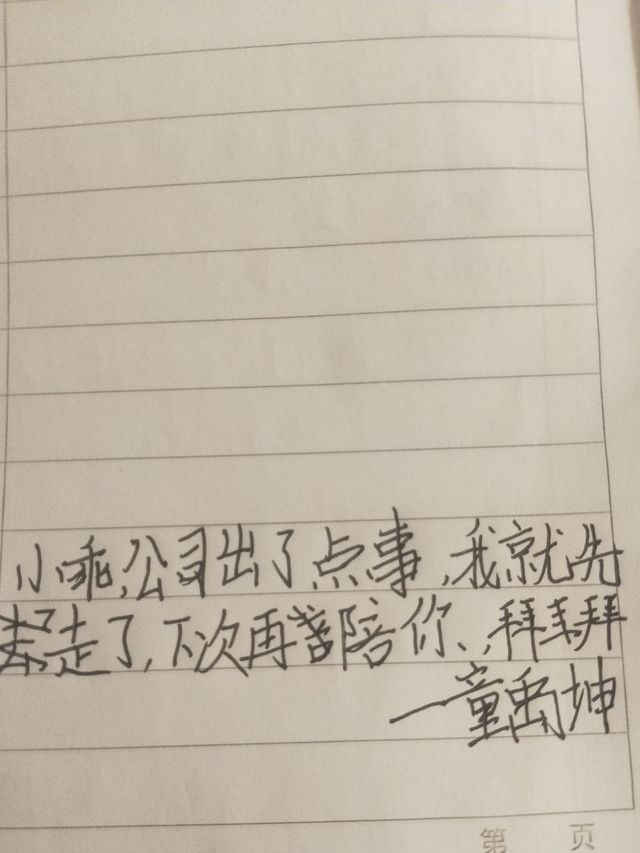 小乖,公司出了点事,我就先
走了,下次再陪你,拜拜
—童禹坤
第 页